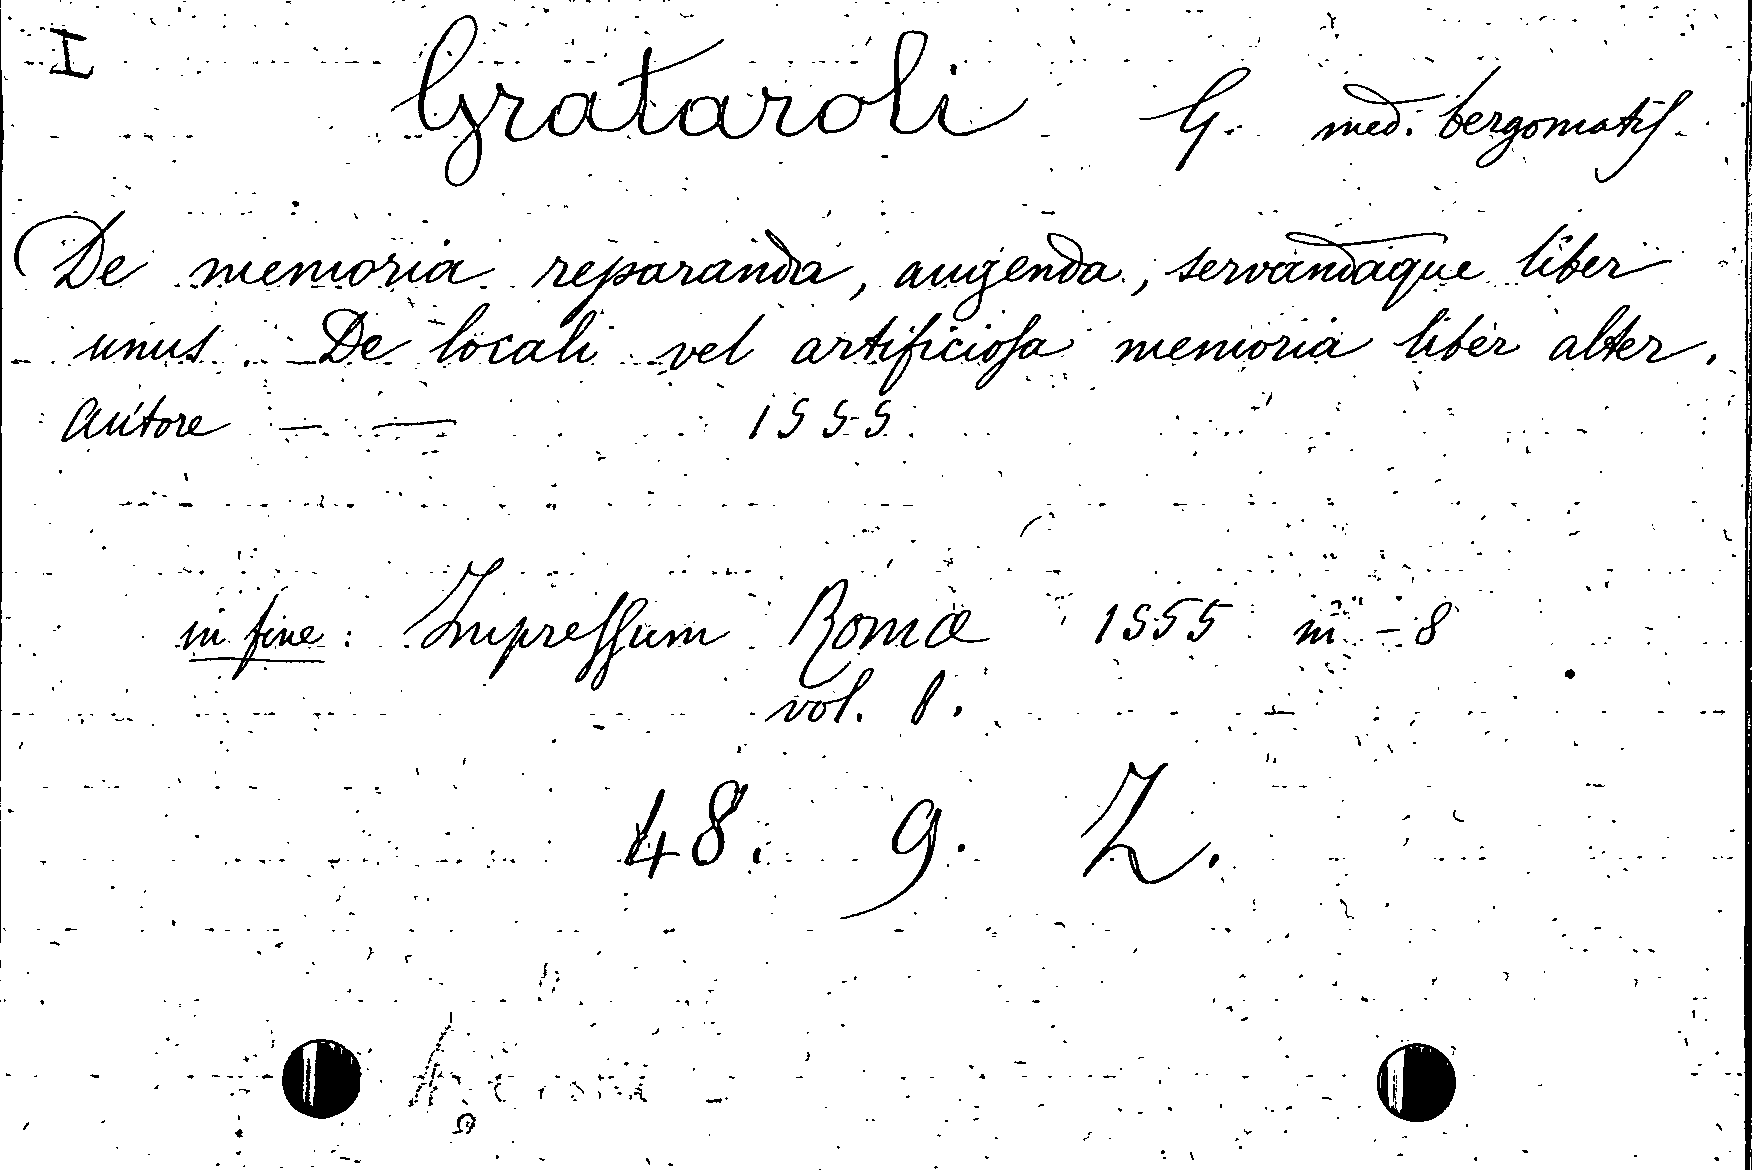 I
Grataroli G. med. bergomatiſ.
De memoria reparanda, augenda, servandaque liber
unus. De locali vel artificioſa memoria liber alter.
Autore — — 1555.
in fine: Impreſſum Romæ 1555 in - 8
vol. 1.
48. 9. Z.